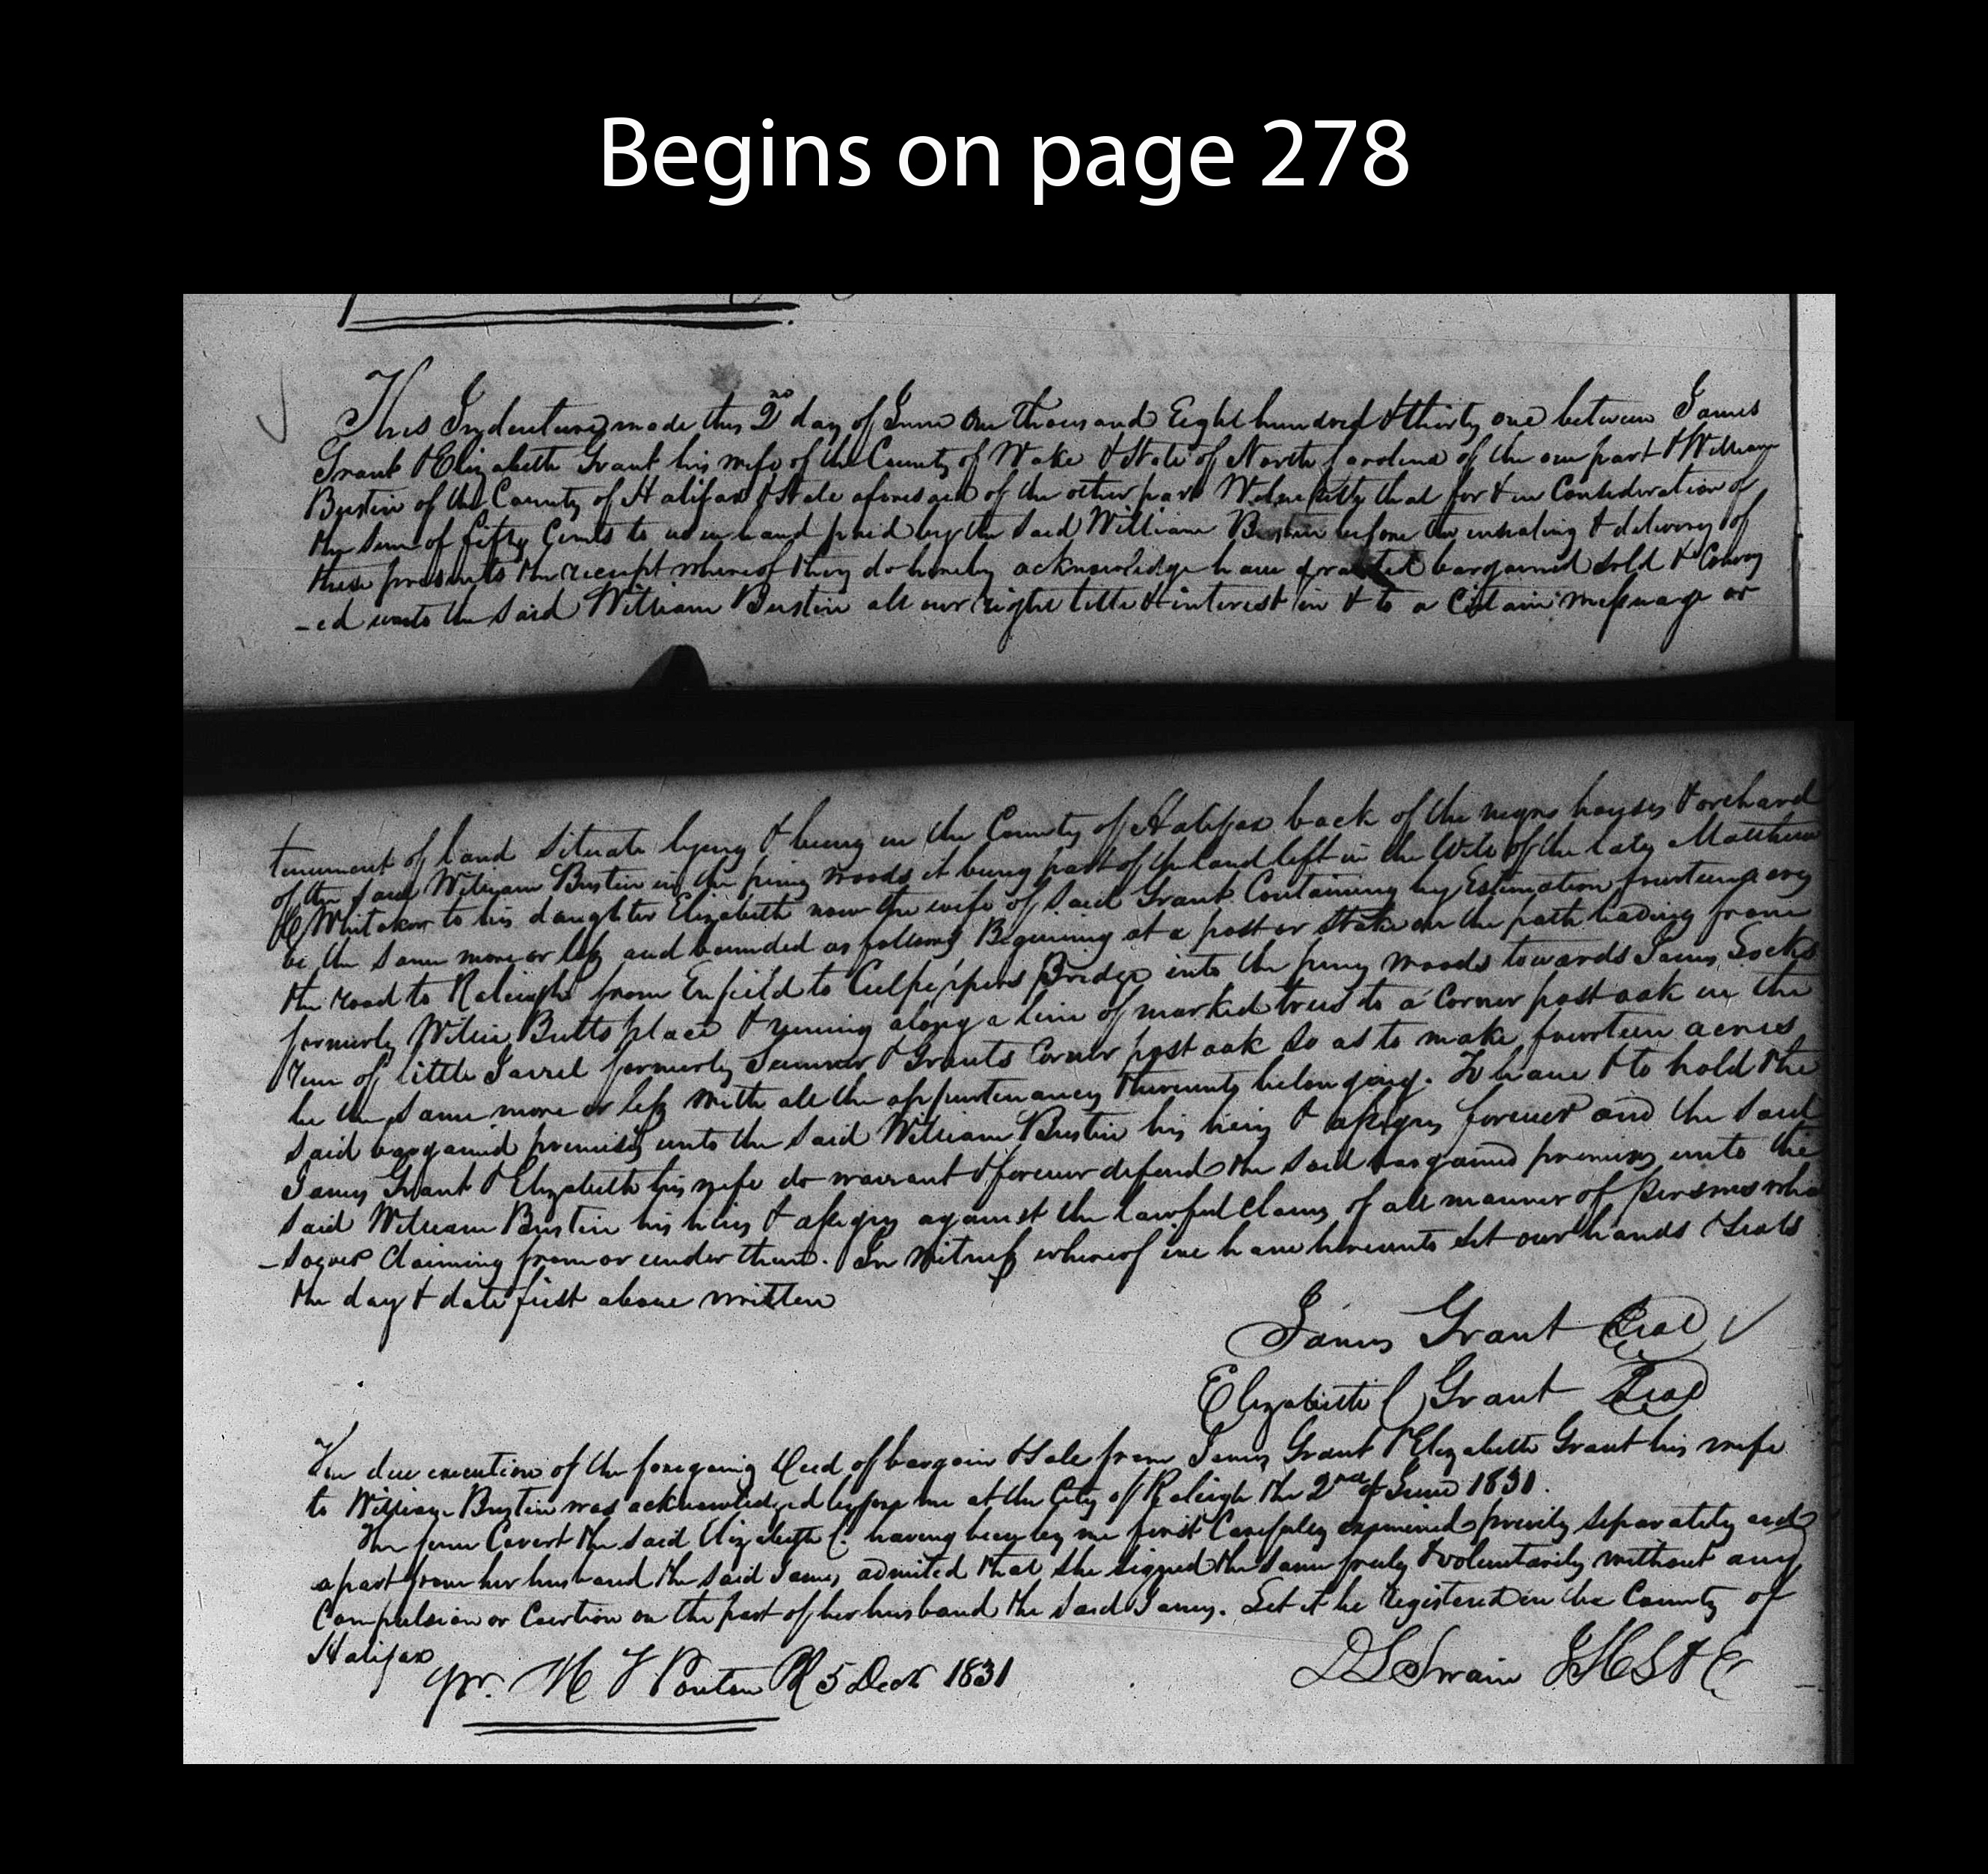 Begins on page 278
This Indenture made this 2nd day of June One Thousand Eight hundred & thirty one between James
Grant & Elizabeth Grant his wife of the County of Wake & State of North Carolina of the one part & William
Bustin of the County of Halifax & State aforesaid of the other part Witnesseth that for & in Consideration of
the sum of fifty Cents to us in hand paid by the said William Bustin before the ensealing & delivery of
these presents the receipt whereof they do hereby acknowledge have granted bargained sold & Convey
-ed unto the said William Bustin all our right title & interest in & to a Certain messuage or
tenement of land situate lying & being in the County of Halifax back of the negro houses & orchard
of the said William Bustin in the piney woods it being part of the land left in the Will of the late Matthew
C Whitaker to his daughter Elizabeth now the wife of said Grant Containing by Estimation fourteen acres
be the same more or less and bounded as follows Begining at a post or stake on the path leading from
the road to Raleigh from Enfield to Culpeppers Bridge into the piney woods towards James Locks
formerly Butts place & runing along a line of marked trees to a Corner post oak in the
run of little Jarrel formerly Sumner & Grants Corner post oak so as to make fourteen acres
be the same more or less with all the appurtenances thereunto belonging. To have & to hold the
said bargained premises unto the said William Bustin his heirs & assigns forever and the said
James Grant & Elizabeth his wife do warrant & forever defend the said bargained premises unto the
said William Bustin his heirs & assigns against the lawful claims of all manner of persons who
-soever Claiming from or under them. In Witness whereof we have hereunto set our hands & seals
the day & date first above written
James Grant Seal
Elizabeth C Grant Seal
The due execution of the foregoing Deed of bargain & sale from James Grant & Elizabeth Grant his wife
to William Bustin was acknowledged before me at the City of Raleigh the 2nd of June 1831.
The feme Covert the said Elizabeth C. having been by me first Carefuley examined privily separately and
apart from her husband the said James admited that she signed the same freely & voluntarily without any
Compulsion or Coertion on the part of her husband the said James. Let it be registered in the County of
Halifax
pr. M T Ponton PR 5 Decr 1831
D L Swain JSCL&E